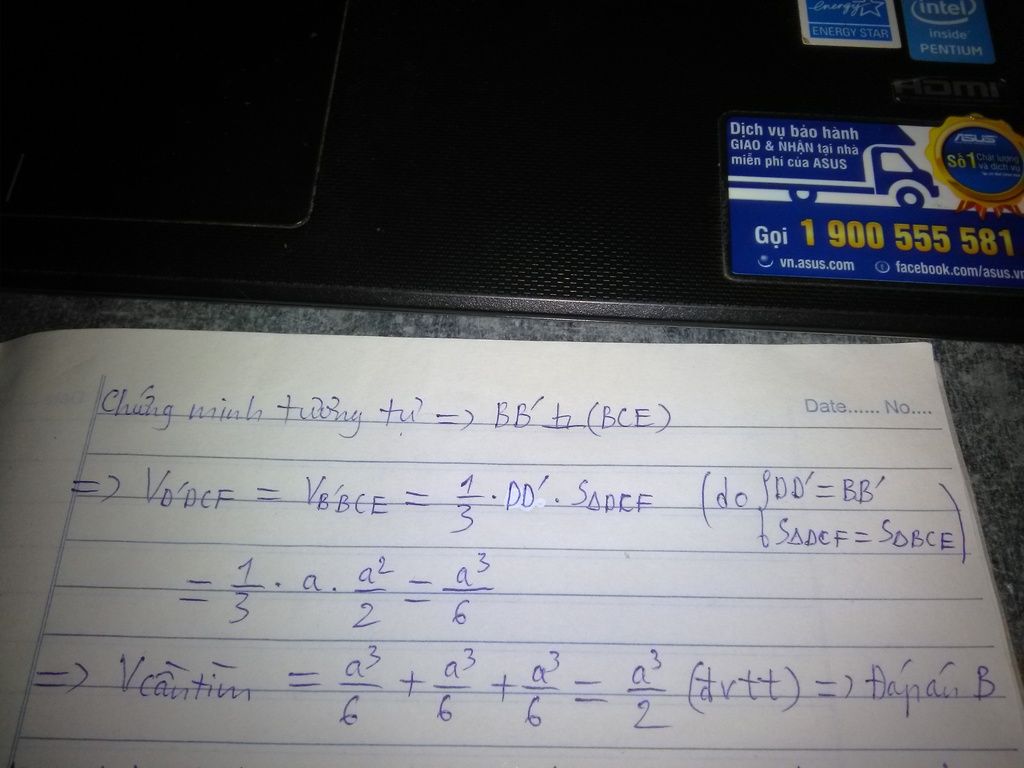 energy
ENERGY STAR
intel
inside
PENTIUM
HDMI
Dịch vụ bảo hành
GIAO & NHẬN tại nhà
miễn phí của ASUS
ASUS
Số 1 Chất lượng
và dịch vụ
Gọi 1 900 555 581
vn.asus.com facebook.com/asus.vn
Date...... No....
Chứng minh tương tự => BB' ⊥ (BCE)
=> V_{D'DCF} = V_{B'BCE} = \frac{1}{3} . DD' . S_{ΔDCF} (do { DD' = BB'
S_{ΔDCF} = S_{ΔBCE} )
= \frac{1}{3} . a . \frac{a^2}{2} = \frac{a^3}{6}
=> V_{cần tìm} = \frac{a^3}{6} + \frac{a^3}{6} + \frac{a^3}{6} = \frac{a^3}{2} (đvtt) => Đáp án B